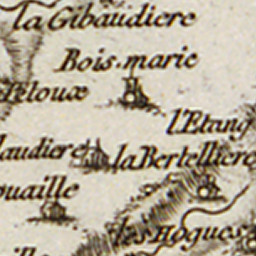 la Gibaudiere
Bois-marie
l'Etang
laudiere
la Bertelliere
ouaille
les Hogues